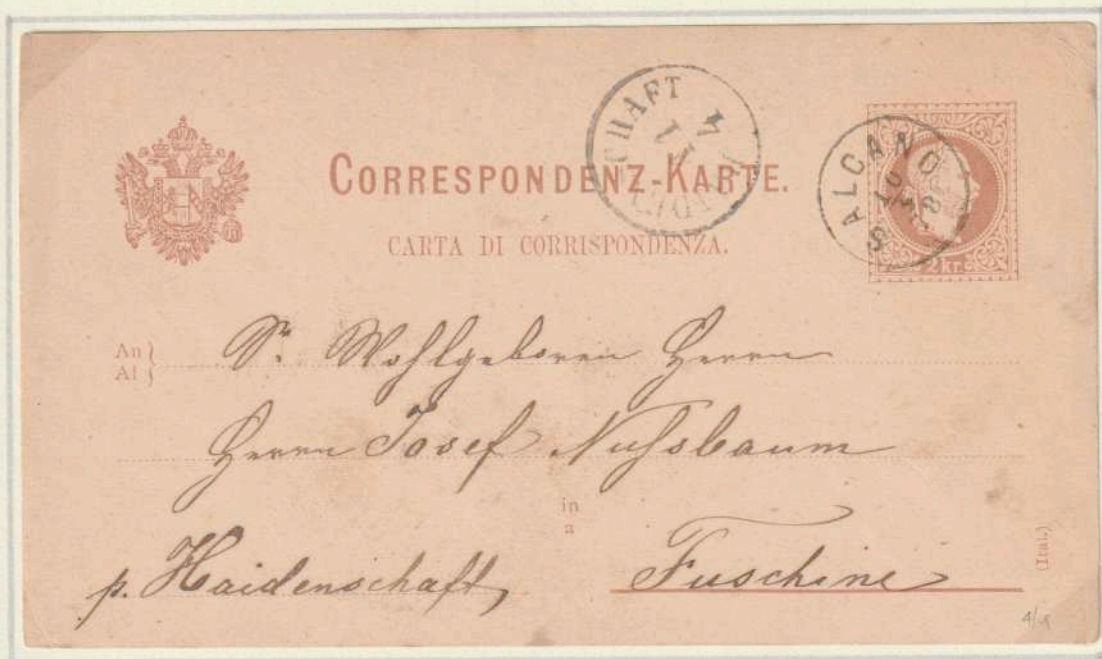 CORRESPONDENZ-KARTE.
CARTA DI CORRISPONDENZA.
SALCANO
10
2 kr.
An
Al
Sr. Wohlgeboren Herrn
Herrn Josef Nuhsbaum
in
a
p. Haidenschaft,
Fuschine
(Ital.)